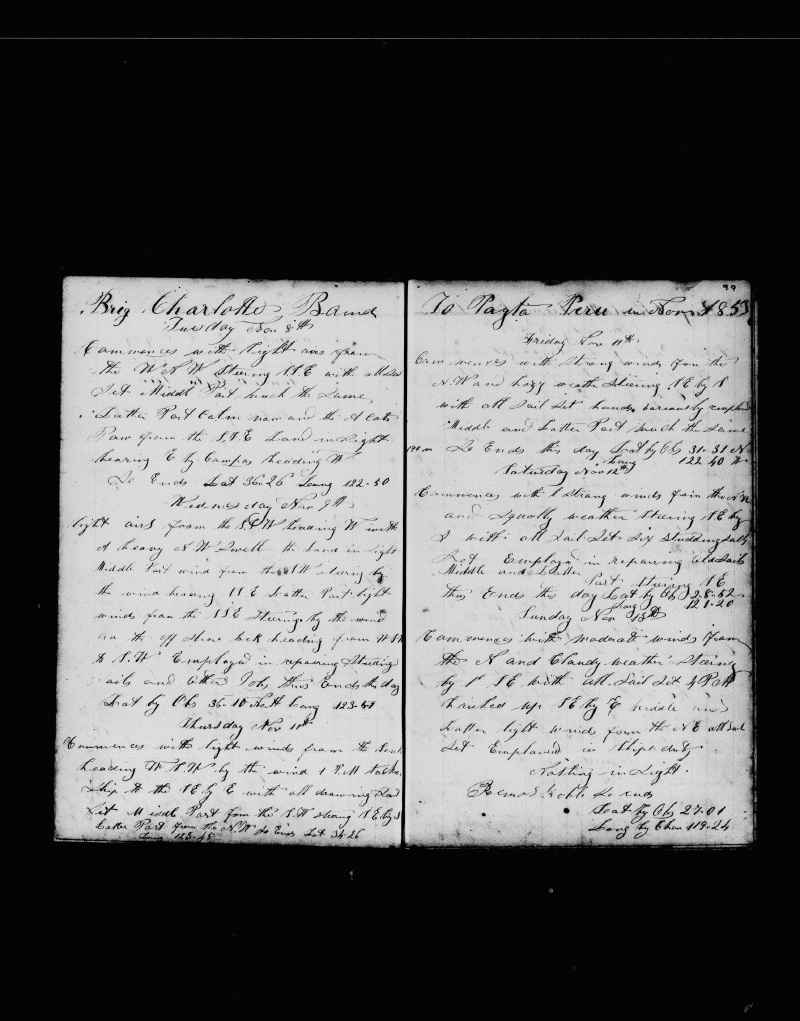 Brig Charlotte Bound
Tuesday Nov 8th
Commences with light airs from
the W N W Steering S.E with all Sail
Set Middle Part much the Same
Latter Part Calm now and then A Cats
Paw from the S.S.E Land in Sight
bearing E by Compas heading W
So Ends Lat 36-26 Long 122-50
Wednesday Nov 9th
light airs from the S.S.W heading W with
A heavy N.W Swell the Land in Sight
Middle Part wind from the S W steering by
the wind heading S S E Latter Part light
winds from the S S E Steering by the wind
on the off Shore tack heading from W S W
to S.W Employed in repairing Studding
Sails and Other Jobs thus Ends this day
Lat by Obs 36-10 North Long 123-
Thursday Nov 10th
Commences with light winds from the South
heading W.S.W by the wind 1 P.M tacked
Ship to the S.E by E with all drawing Sail
Set Middle Part from the S.W steering S E by S
Latter Part from the N.W So Ends Lat 34-26
Long 123-48
99
To Payta Peru in Nov 1853
Friday Nov 11th
Commences with Strong winds from the
N.W and hazy weather Steering S E by S
with all Sail Set hands variously employed
Middle and Latter Part much the Same
So Ends this day Lat by Obs 31-31 N
Long 122 40 W
Saturday Nov 12th
Commences with Strong winds from the N.W
and Squally weather Steering S.E by
S with all Sail Set Six Studding Sails
Set Employed in repairing Old Sails
Middle and Latter
Part Steering S E
thus Ends this day Lat by Obs 28-52
Long 121-20
Sunday Nov 13th
Commences with moderate winds from
the N and Cloudy weather Steering
by S S E with all Sail Set 4 P.M
hauled up S E by E middle and
Latter light winds from the N E all Sail
Set Employed in Ships duty
Nothing in Sight.
So ends
Lat by Obs 27-01
Long by Chro 119-24